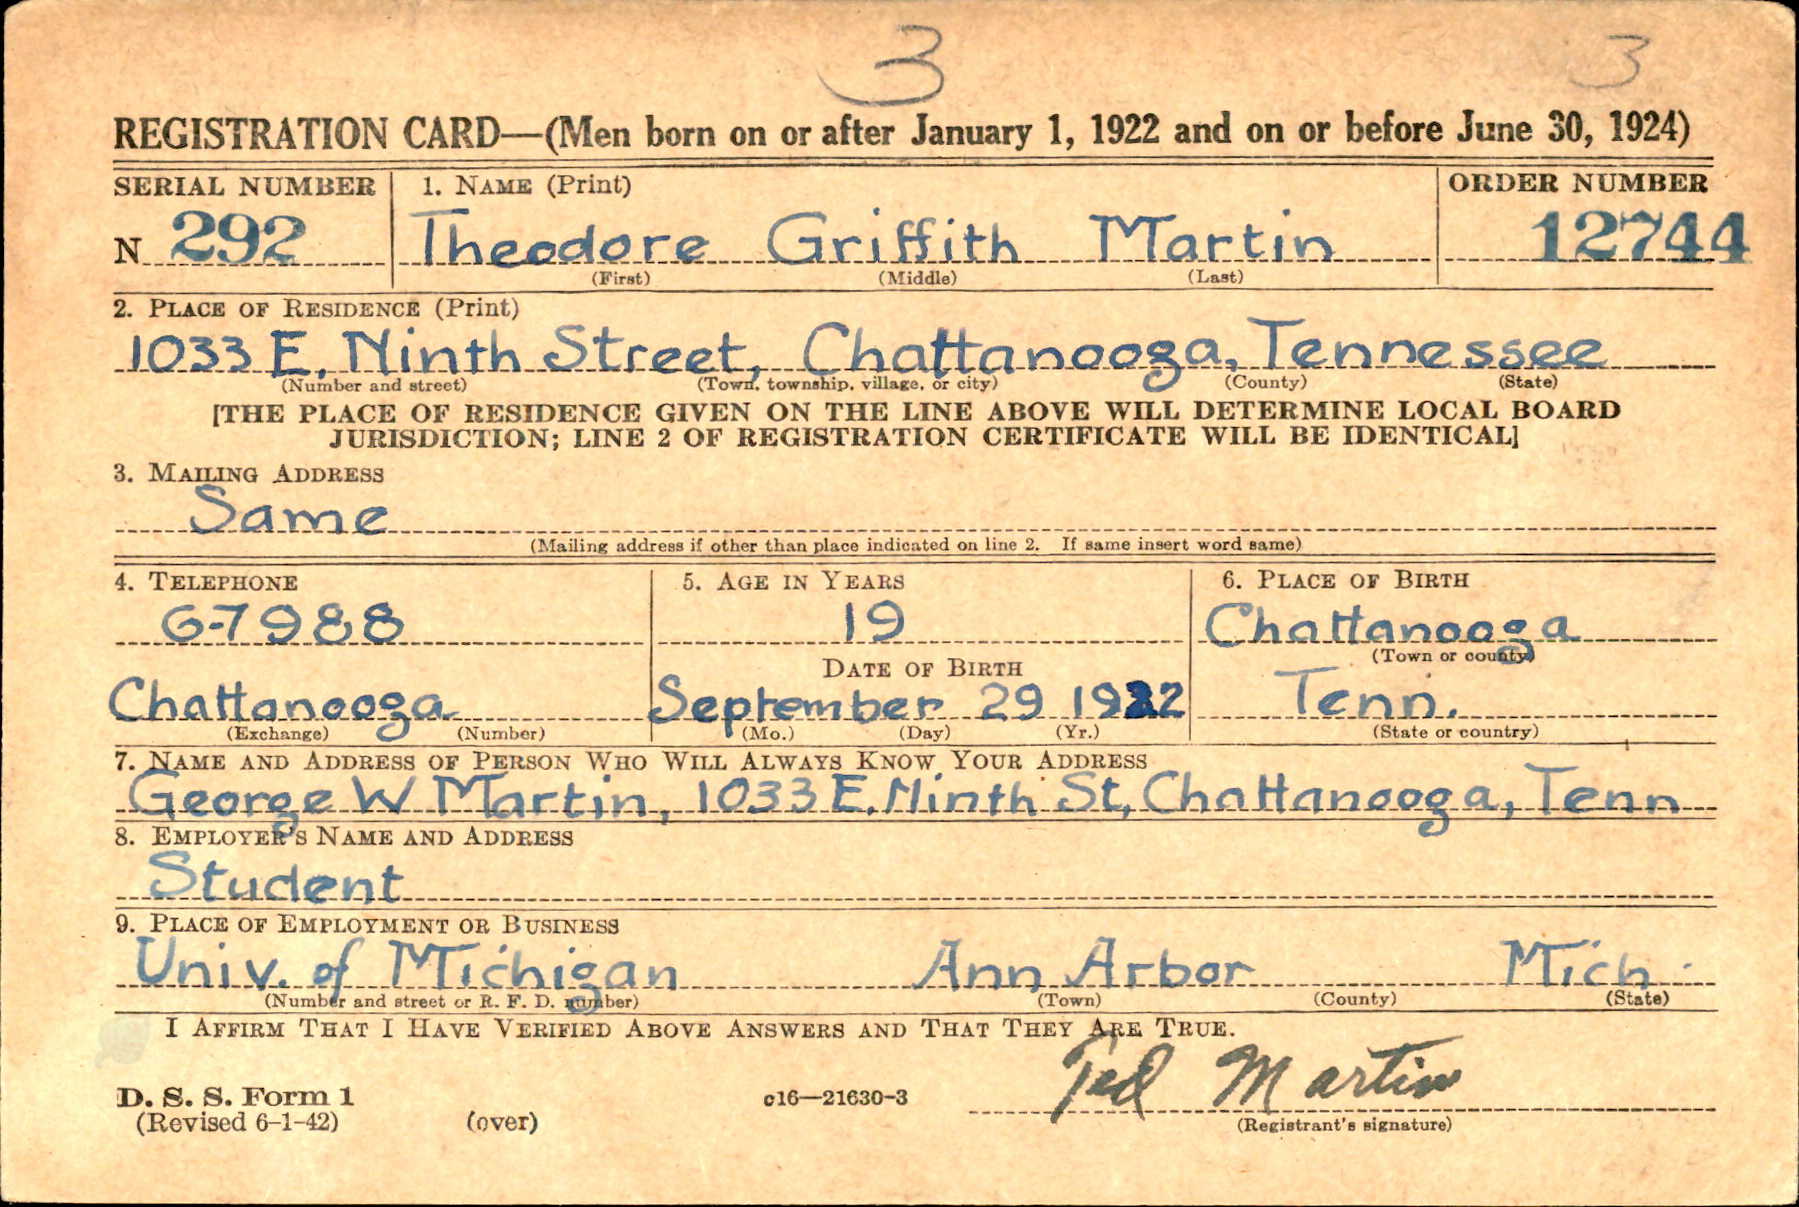 3 3
REGISTRATION CARD—(Men born on or after January 1, 1922 and on or before June 30, 1924)
SERIAL NUMBER 1. NAME (Print) ORDER NUMBER
N 292 Theodore Griffith Martin 12744
(First) (Middle) (Last)
2. PLACE OF RESIDENCE (Print)
1033 E. Ninth Street, Chattanooga, Tennessee
(Number and street) (Town, township, village, or city) (County) (State)
[THE PLACE OF RESIDENCE GIVEN ON THE LINE ABOVE WILL DETERMINE LOCAL BOARD
JURISDICTION; LINE 2 OF REGISTRATION CERTIFICATE WILL BE IDENTICAL]
3. MAILING ADDRESS
Same
(Mailing address if other than place indicated on line 2. If same insert word same)
4. TELEPHONE 5. AGE IN YEARS 6. PLACE OF BIRTH
6-7988 19 Chattanooga
(Town or county)
DATE OF BIRTH
Chattanooga September 29 1922 Tenn.
(Exchange) (Number) (Mo.) (Day) (Yr.) (State or country)
7. NAME AND ADDRESS OF PERSON WHO WILL ALWAYS KNOW YOUR ADDRESS
George W Martin, 1033 E. Ninth St, Chattanooga, Tenn
8. EMPLOYER'S NAME AND ADDRESS
Student
9. PLACE OF EMPLOYMENT OR BUSINESS
Univ. of Michigan Ann Arbor Mich.
(Number and street or R. F. D. number) (Town) (County) (State)
I AFFIRM THAT I HAVE VERIFIED ABOVE ANSWERS AND THAT THEY ARE TRUE.
Ted Martin
D. S. S. Form 1 c16—21630-3
(Revised 6-1-42) (over) (Registrant's signature)